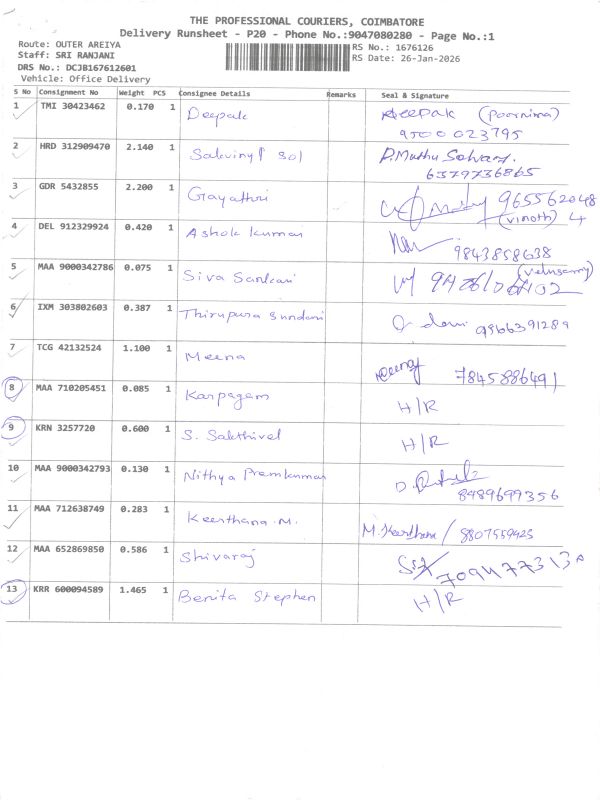 THE PROFESSIONAL COURIERS, COIMBATORE
Delivery Runsheet - P20 - Phone No.:9047080280 - Page No.:1
Route: OUTER AREIYA
RS No.: 1676126
Staff: SRI RANJANI
RS Date: 26-Jan-2026
DRS No.: DCJB167612601
Vehicle: Office Delivery
S No Consignment No Weight PCS Consignee Details Remarks Seal & Signature
1 TMI 30423462 0.170 1 Deepak Deepak (Poornima)
9500023795
2 HRD 312909470 2.140 1 P. Muthu Selvam.
6379736865
3 GDR 5432855 2.200 1 Gayathri 965562048
(Vinoth) 4
4 DEL 912329924 0.420 1 Ashok kumar
9843858638
5 MAA 9000342786 0.075 1 Siva Sankari (Velusamy)
6 IXM 303802603 0.387 1 Thirupura Sundari 9966391289
7 TCG 42132524 1.100 1 Meena Meena 7845886491
8 MAA 710205451 0.085 1 Karpagam H/R
9 KRN 3257720 0.600 1 S. Sakthivel H/R
10 MAA 9000342793 0.130 1 Nithya Premkumar
8489699356
11 MAA 712638749 0.283 1 Keerthana.M. M. Keerthana / 8807559425
12 MAA 652869850 0.586 1 Shivaraj
13 KRR 600094589 1.465 1 Benita Stephen H/R